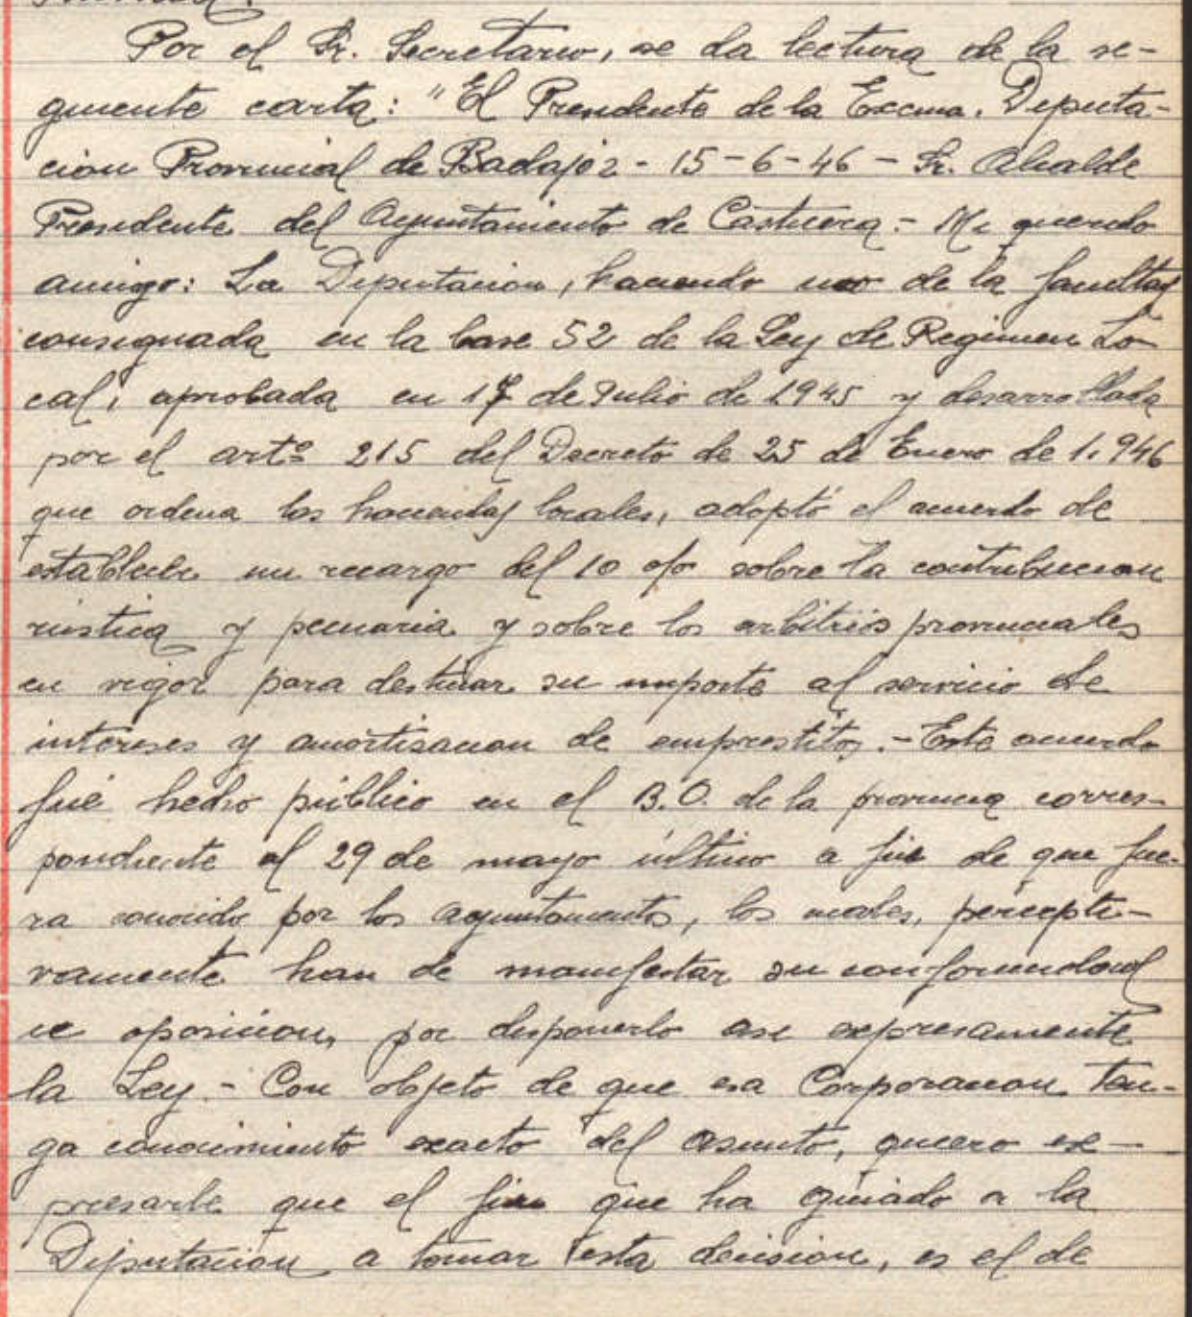 Por el Sr. Secretario, se da lectura de la se-
guiente carta: "El Presidente de la Excma. Diputa-
cion Provincial de Badajoz - 15-6-46 - Sr. Alcalde
Presidente del Ayuntamiento de Castuera.- Mi querido
amigo: La Diputacion, haciendo uso de la facultad
consignada en la base 52 de la Ley de Regimen Lo-
cal, aprobada en 17 de Julio de 1945 y desarrollada
por el artº 215 del Decreto de 25 de Enero de 1.946
que ordena las haciendas locales, adoptó el acuerdo de
establecer un recargo del 10 o/o sobre la contribucion
rústica y pecuaria y sobre los arbitrios provinciales
en vigor para destinar su importe al servicio de
intereses y amortisacion de emprestitos.- Este acuerdo
fué hecho público en el B.O. de la provincia corres-
pondiente al 29 de mayo último a fin de que fue-
ra conocido por los ayuntamientos, los cuales, percepti-
vamente han de manifestar su conformidad
u oposicion, por disponerlo asi expresamente
la Ley.- Con objeto de que esa Corporacion ten-
ga conocimiento exacto del asunto, quiero ex-
presarle que el fin que ha guiado a la
Diputacion a tomar esta decision, es el de